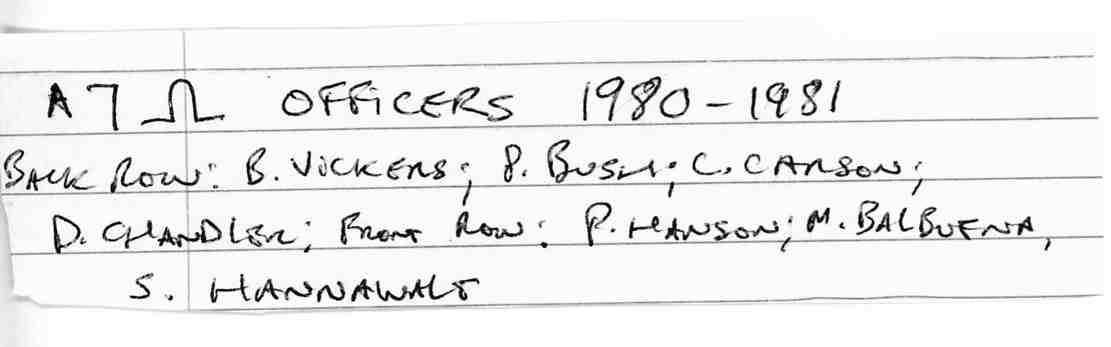 A ㄱ Ω OFFICERS 1980-1981
BACK ROW: B. VICKERS; P. BUSH; C. CARSON;
D. CHANDLER; FRONT ROW: P. HANSON; M. BALBUENA,
S. HANNAWALT